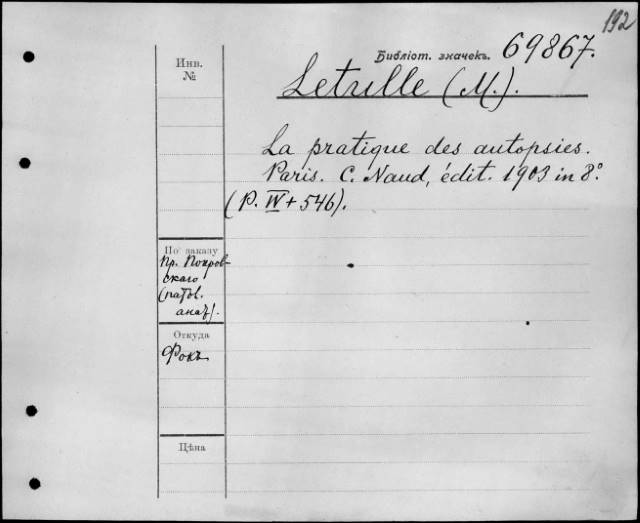 192
Инв.
№
Библіот. значекъ. 69867.
Letulle (M.).
La pratique des autopsies.
Paris. C. Naud, édit. 1903 in 8º.
(P. IV + 546).
По заказу
Пр. Покров-
скаго
(патол.
анат).
Откуда
Фокъ
Цѣна